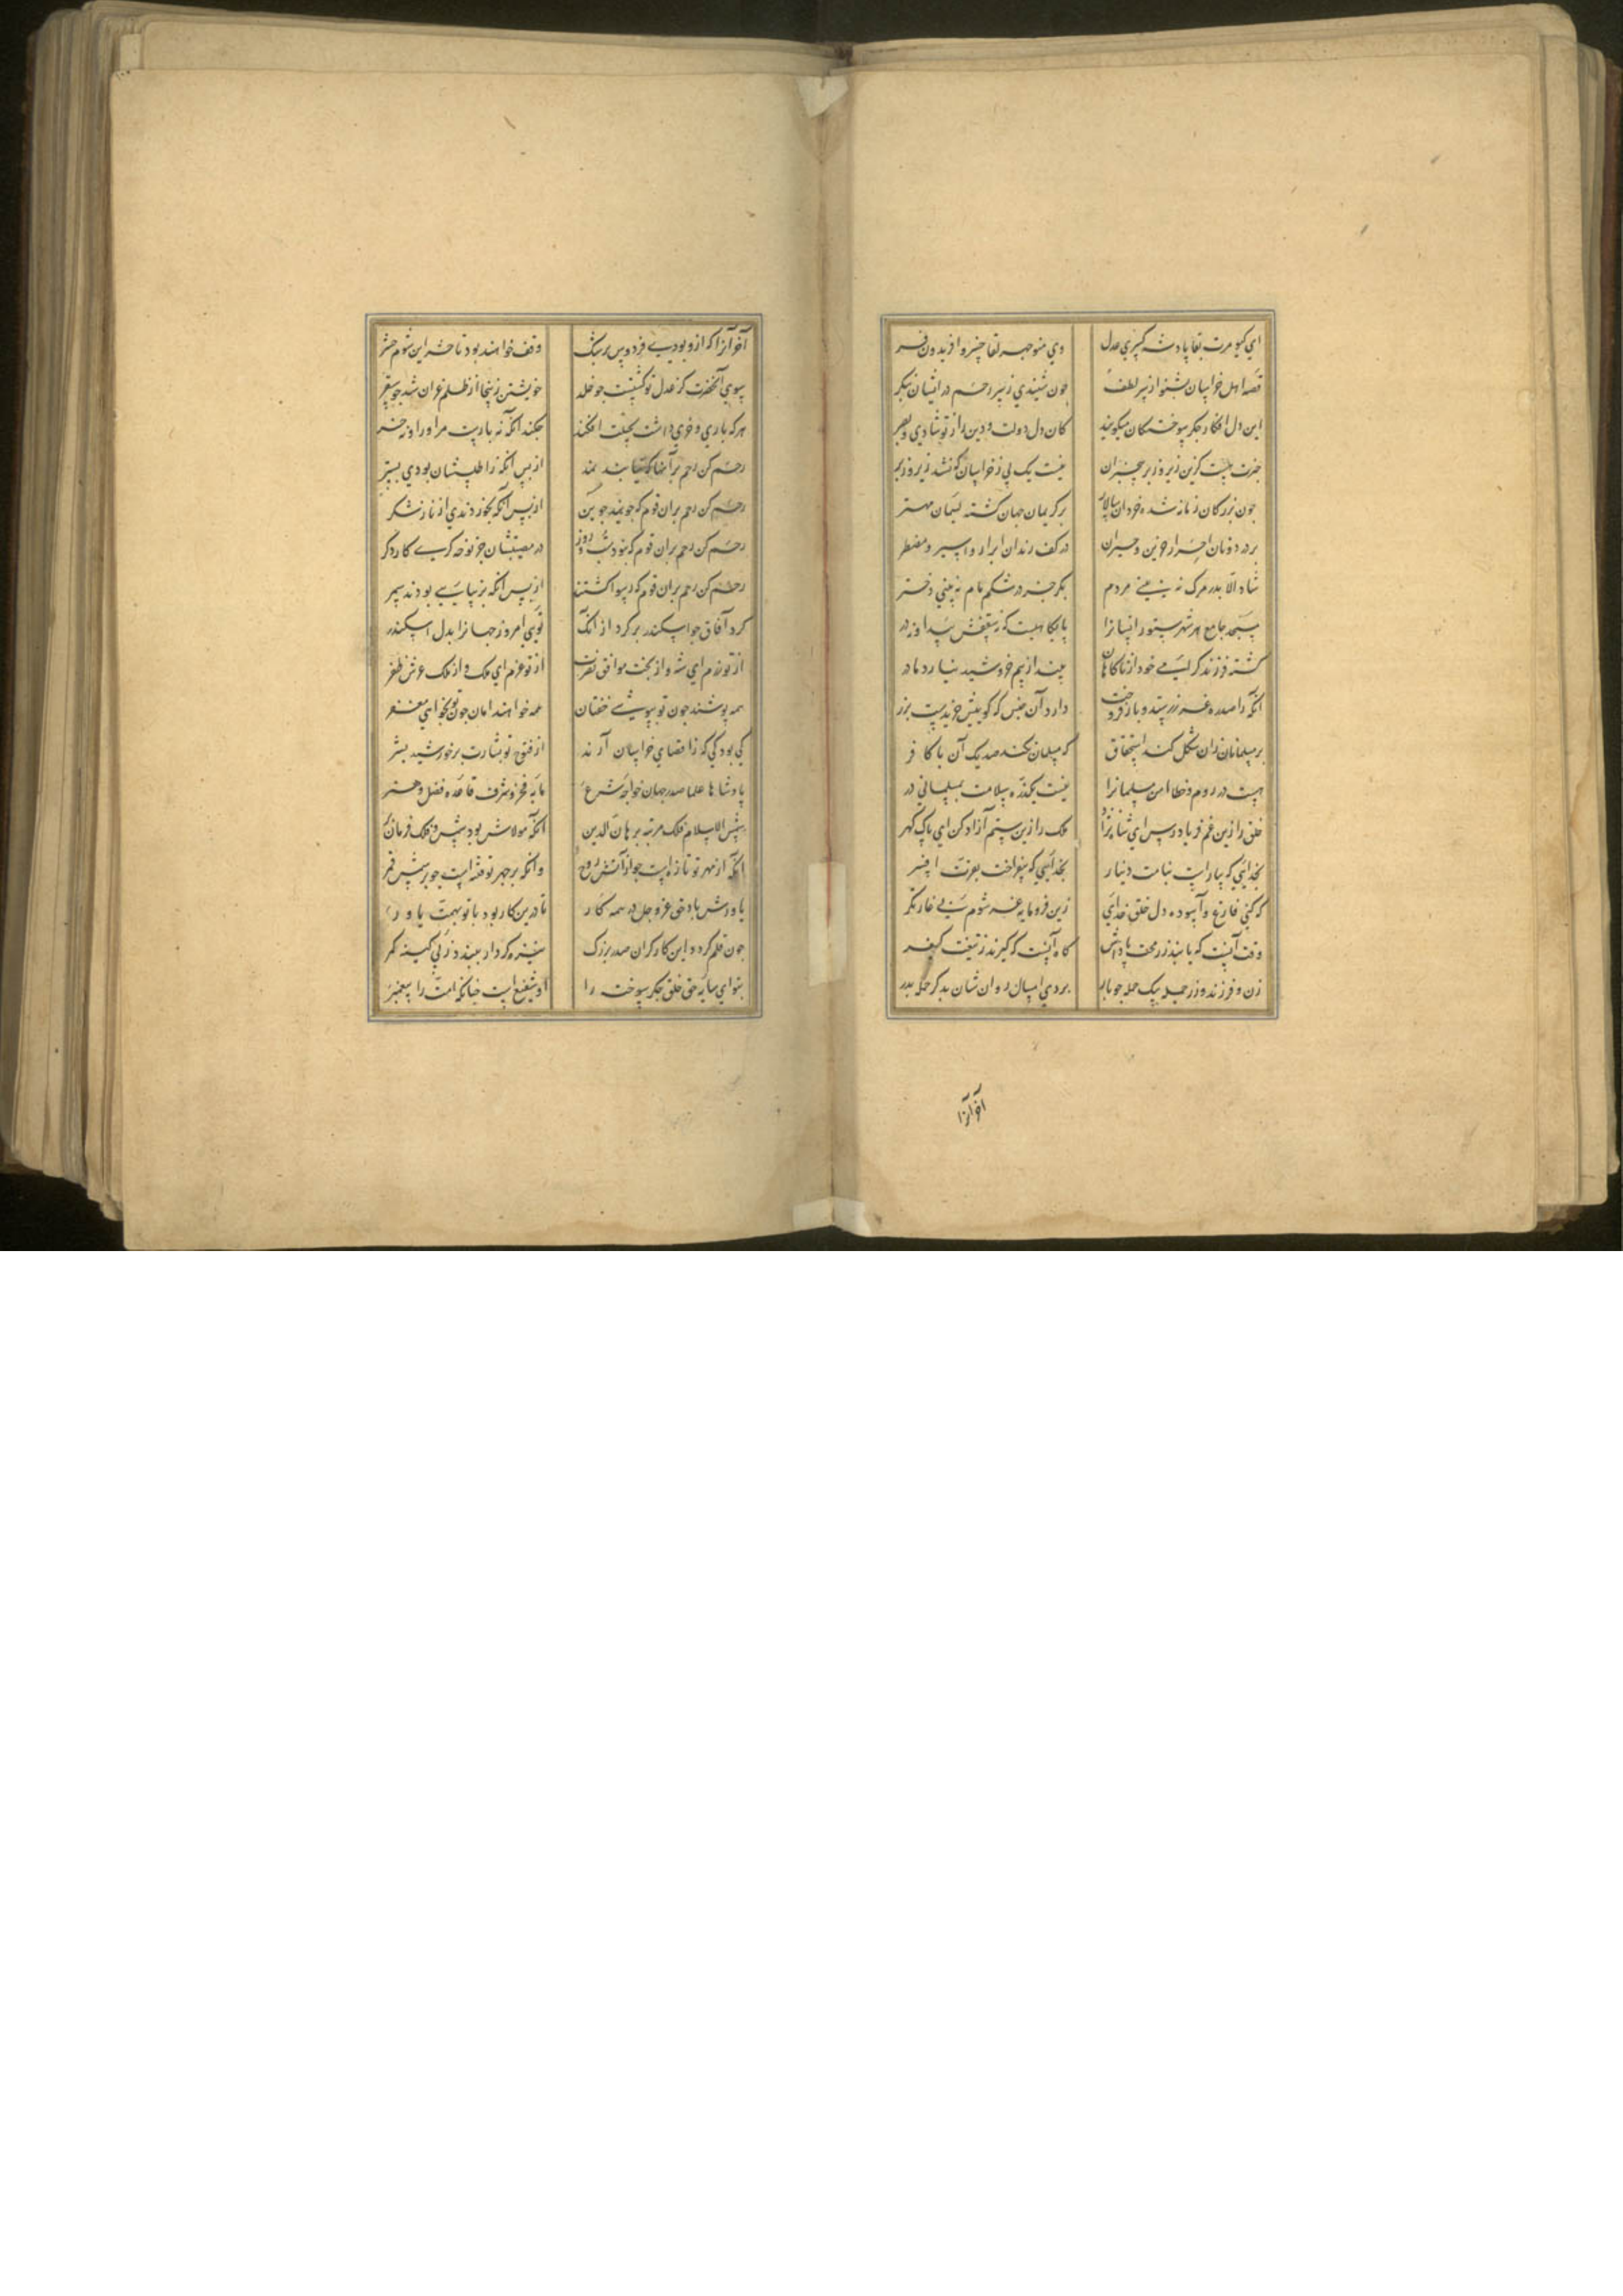 ای کیومرث بقا پادشه کسری عدل وی منوچهر لقا خسرو افریدون فر
قصه اهل خراسان بشنو از سر لطف چون شنیدی ز سر رحم در ایشان بنکر
این دل افکار جکر سوختکان میکویند کان دل و دولت و دین را ز تو شادی و
خبرت هست کزین زیر و زبر بیخبران نیست یک پی ز خراسان که نشد زیر و زبر
چون بزرکان زمانه شده خردان سالار بر کریمان جهان کشته لییمان مهتر
بر در دونان احرار حزین و حیران در کف رندان ابرار و اسیر و مضطر
شاد الا بدر مرک نه بینی مردم بکر جز در شکم مام نه بینی دختر
مسجد جامع هر شهر ستورانشانرا پایکاهیست که نه سقفش پیدا و نه در
کشته فرزند کرامی خود از ناکاهان بیند از بیم خروشید نیارد مادر
آنکه را صد ره غز زر ستد و باز فروخت دارد آن جنس که کوییش خریدست بزر
بر مسلمانان زان شکل کند استخفاف که مسلمان نکند صد یک آن با کافر
هست در روم و خطا امن مسلمانرا نیست یکذره سلامت بمسلمانی در
خلق را زین غم فریاد رس ای شاه نژاد ملک را زین ستم آزاد کن ای پاک کهر
بخدایی که بیاراست بنامت دینار بخدایی که بیفراخت بفرت افسر
که کنی فارغ و آسوده دل خلق خدای زین فرومایه غز شوم پی غارتکر
وقت آنست که یابند ز رمحت پاداش کاه آنست که کیرند ز تیغت کیفر
زن و فرزند و زر جمله بیک حمله چو پار بردی امسال روان شان بدکر حمله ببر
آخر آنرا
آخر آنرا که ازو بودی فردوس برشک وقف خواهند بود تا حشر این شوم حشر
سوی آنحضرت کز عدل تو کشتست چو خلد خویشتن زینجا از ظلم غزان شد چو سقر
هر که باری و خری داشت بحیلت افکند چکند آنکه نه بارست مر او را و نه خر
رحم کن رحم بر آنها که نیابند نمد از پس آنکه ز اطلسشان بودی بستر
رحم کن رحم بران قوم که جویند جوین از پس آنکه نخوردندی از ناز شکر
رحم کن رحم بران قوم که نبود شب و روز در مصیبتشان جز نوحه کری کار دکر
رحم کن رحم بران قوم که رسوا کشتند از پس آنکه بودند سمر
کرد آفاق چو اسکندر بر کرد از آنک تویی امروز جهانرا بدل اسکندر
از تو رزم ای شه و از بخت موافق نصرت از تو عزم ای ملک و از ملک عرش ظفر
همه پوشند چون تو بپوشی خفتان همه خواهند امان چون تو بخواهی مغفر
کی بود کی که ز اقصای خراسان آرند از فتوح تو بشارت بر خورشید بشر
پادشاها علما صدر جهان خواجه شرع مایه فخر و شرف قاعده فضل و هنر
شمس الاسلام فلک مرتبه برهان الدین آنکه مولاش بود شمس و فلک فرمان بر
آنکه از مهر تو تازه است چو از آتش روح و آنکه بر چهر تو فتنه است چو بر شمس قمر
یاورش باد حق عز و جل در همه کار تا درین کار بود با تو بهمت یاور
چون قلم کردد این کار کران صدر بزرک نیزه کردار ببندد ز پی کینه کمر
بتو ای سایه حق خلق جکر سوخته را او شفیع است چنانکه امت را پیغمبر